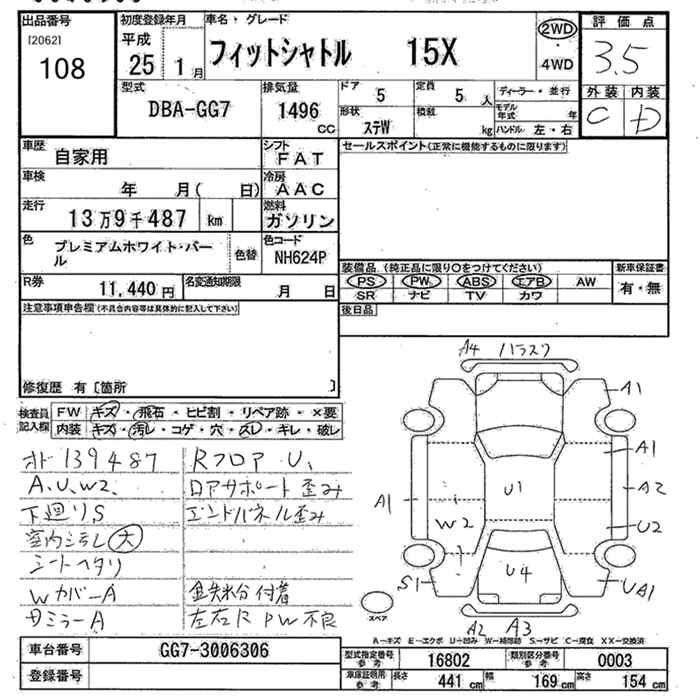 出品番号
[2062]
108
初度登録年月
平成
25 1月
車名・グレード
フィットシャトル 15X
2WD
・
4WD
評価点
3.5
外装 内装
C D
型式
DBA-GG7
排気量
1496 cc
ドア
5
定員
5 人
形状
ステW
積載
kg
ディーラー・並行
モデル年式 年
ハンドル 左・右
車歴
自家用
シフト
FAT
車検
年 月( 日)
冷房
AAC
走行
13万9千487 km
燃料
ガソリン
色
プレミアムホワイト・パール
色替
色コード
NH624P
R券
11,440 円
名変通知期限
月 日
セールスポイント(正常に機能するものに限ります)
装備品 (純正品に限り○をつけてください)
PS PW ABS エアB AW
SR ナビ TV カワ
新車保証書
有・無
後日品
注意事項申告欄(不具合内容等は具体的に記入して下さい)
修復歴 有〔箇所 〕
検査員記入欄
FW キズ・飛石・ヒビ割・リペア跡・×要
内装 キズ・汚レ・コゲ・穴・スレ・キレ・破レ
オド 139487
A.U.W2.
下廻りS
室内ヨゴレ 大
シートヘタリ
WカバーA
ドミラーA
RフロアU、
ロアサポート歪み
エンドパネル歪み
鉄粉付着
左右R PW不良
A4 バラスウ
A1
A1
A2
U2
UA1
A1
U1
W2
U4
S1
A2 A3
スペア
A-キズ E-エクボ U-凹み W-補修跡 S-サビ C-腐食 XX-交換済
車台番号
GG7-3006306
登録番号
型式指定番号 参考
16802
類別区分番号 参考
0003
車庫証明用 参考
長さ 441 cm
幅 169 cm
高さ 154 cm